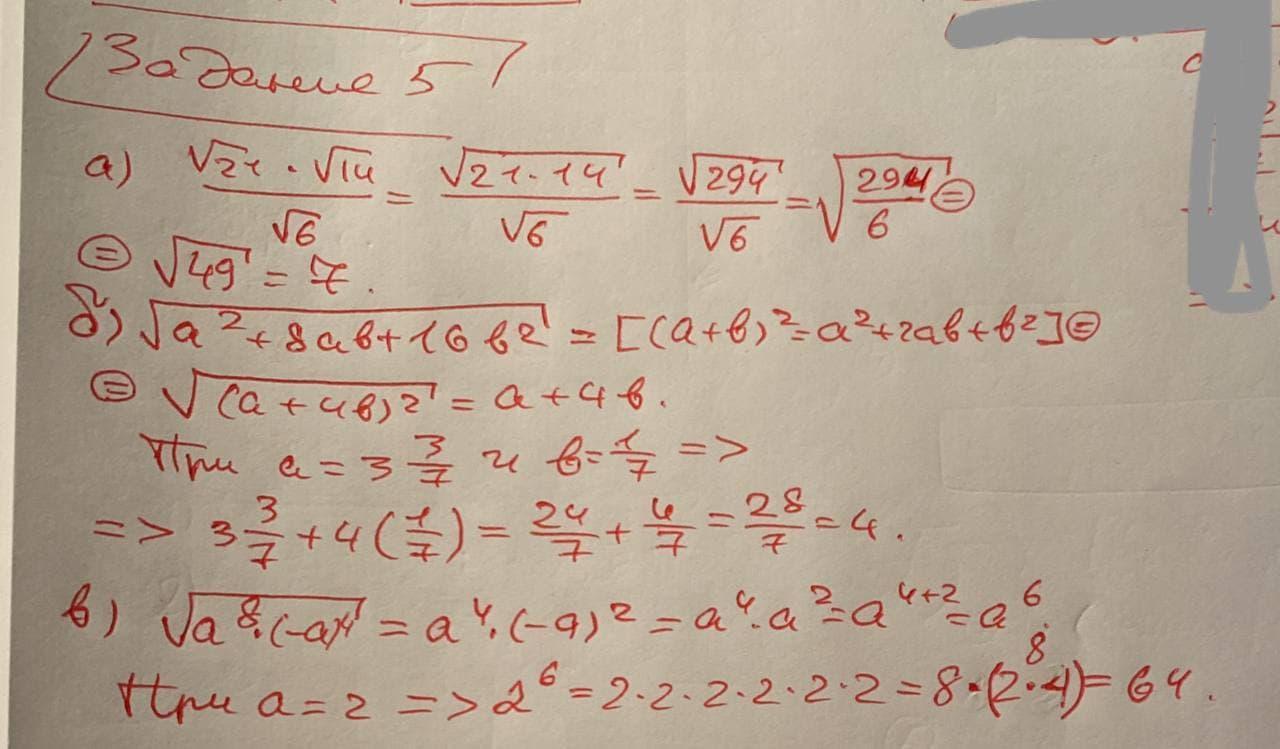 Задание 5
а) √21 · √14 / √6 = √(21·14) / √6 = √294 / √6 = √(294/6) ⊜
⊜ √49 = 7.
б) √(a² + 8ab + 16b²) = [(a+b)² = a² + 2ab + b²] ⊜
⊜ √((a + 4b)²) = a + 4b.
При a = 3 3/7 и b = 1/7 =>
=> 3 3/7 + 4 (1/7) = 24/7 + 4/7 = 28/7 = 4.
в) √(a⁸ · (-a)⁴) = a⁴ · (-a)² = a⁴ · a² = a⁴⁺² = a⁶.
8
При a = 2 => 2⁶ = 2·2·2·2·2·2 = 8·(2·4) = 64.